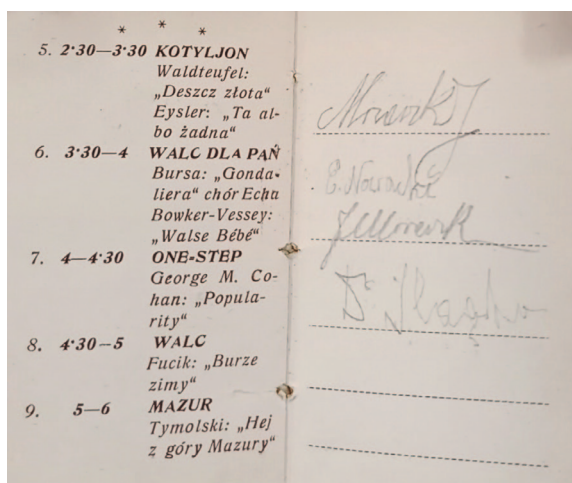 * * *
5. 2·30—3·30 KOTYLJON
Waldteufel:
„Deszcz złota“
Eysler: „Ta al-
bo żadna“
6. 3·30—4 WALC DLA PAŃ
Bursa: „Gonda-
liera“ chór Echa
Bowker-Vessey:
„Walse Bébé“
7. 4—4·30 ONE-STEP
George M. Co-
han: „Popula-
rity“
8. 4·30—5 WALC
Fucik: „Burze
zimy“
9. 5—6 MAZUR
Tymolski: „Hej
z góry Mazury“